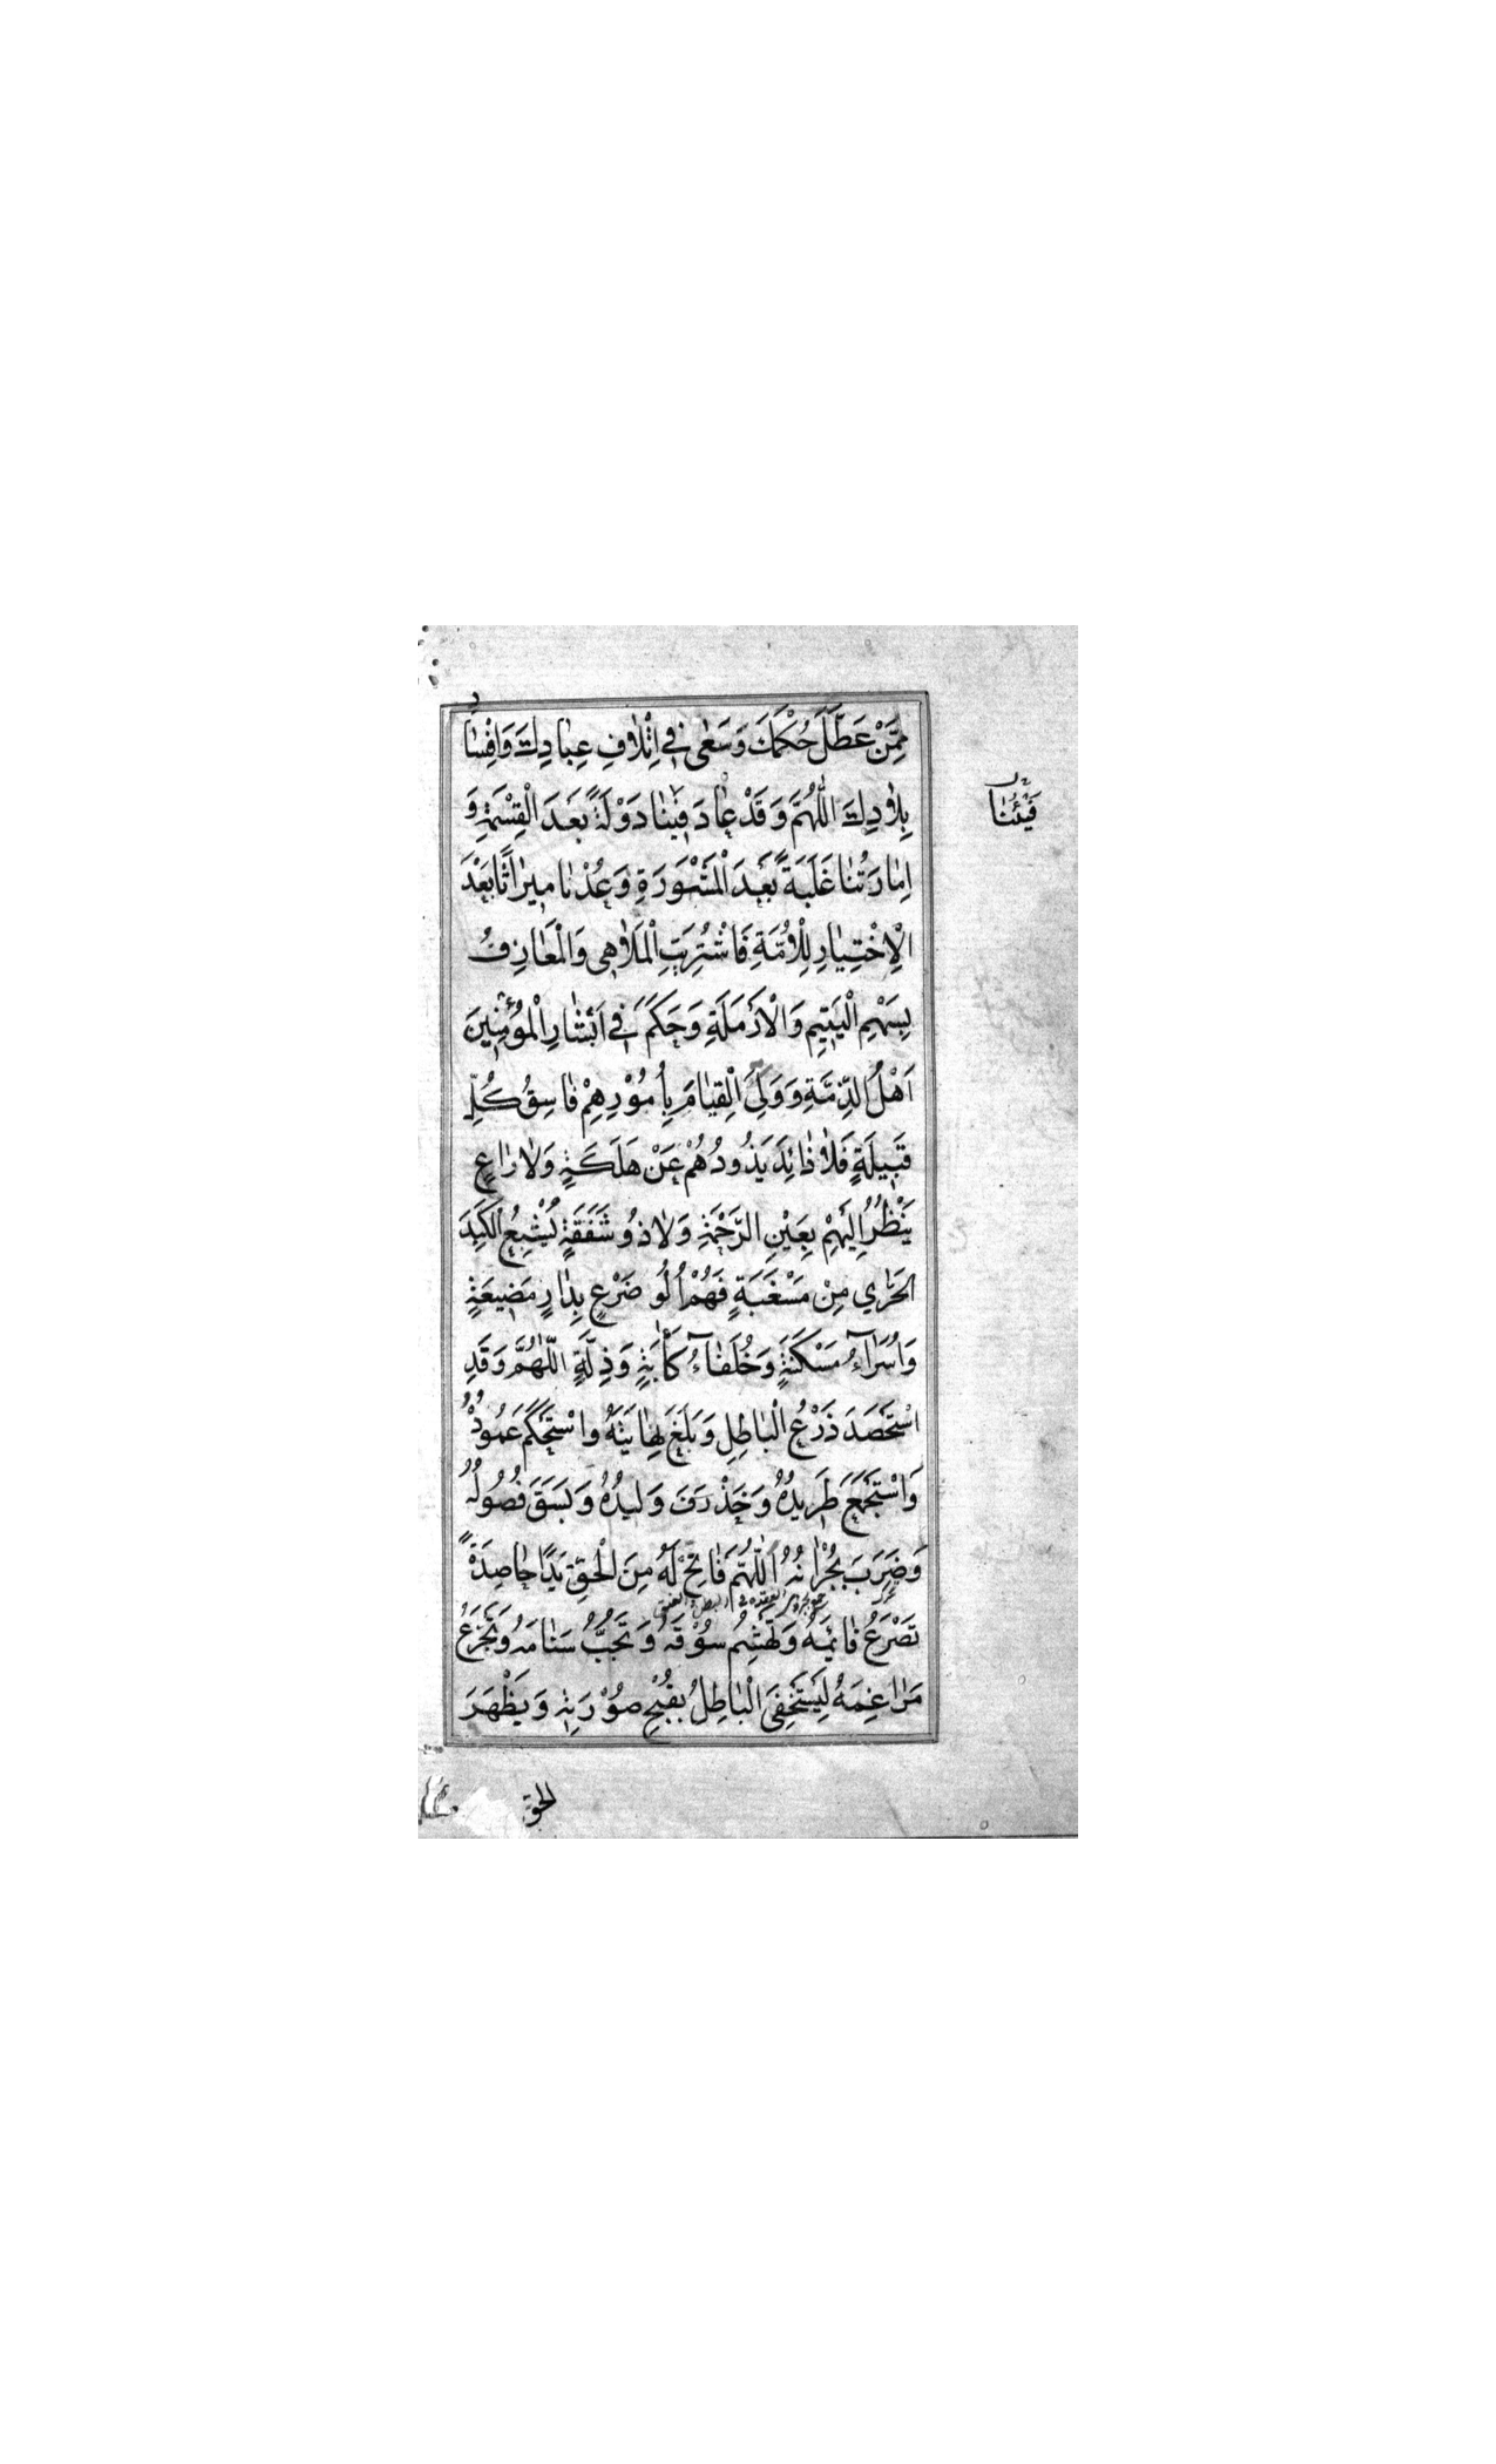 مِمَّنْ عَطَّلَ حُكْمَكَ وَسَعٰى فِي اِتْلَافِ عِبَادِكَ وَاِفْسَادِ
بِلَادِكَ اَللّٰهُمَّ وَقَدْ عَادَ فَيْئُنَا دَوْلَةً بَعْدَ الْقِسْمَةِ وَ
فَيْئُنَا
اِمَارَتُنَا غَلَبَةً بَعْدَ الْمَشْوَرَةِ وَعُدْنَا مِيرَاثًا بَعْدَ
الْاِخْتِيَارِ لِلْاُمَّةِ فَاشْتُرِيَتِ الْمَلَاهِى وَالْمَعَازِفُ
بِسَهْمِ الْيَتِيمِ وَالْاَرْمَلَةِ وَحَكَمَ فِي اَبْشَارِ الْمُؤْمِنِينَ
اَهْلُ الذِّمَّةِ وَوَلِيَ الْقِيَامَ بِاُمُوْرِهِمْ فَاسِقُ كُلِّ
قَبِيلَةٍ فَلَا ذَائِدَ يَذُودُهُمْ عَنْ هَلَكَةٍ وَلَا رَاعٍ
يَنْظُرُ اِلَيْهِمْ بِعَيْنِ الرَّحْمَةِ وَلَا ذُو شَفَقَةٍ يُشْبِعُ الْكَبِدَ
الْحَرّٰي مِنْ مَسْغَبَةٍ فَهُمْ اُلُو ضَرْعٍ بِدَارٍ مَضِيعَةٍ
وَاُسَرَآءُ مَسْكَنَةٍ وَخُلَفَآءُ كَاٰبَةٍ وَذِلَّةٍ اَللّٰهُمَّ وَقَدِ
اسْتَحْصَدَ زَرْعُ الْبَاطِلِ وَبَلَغَ نِهَايَتَهُ وَاسْتَحْكَمَ عَمُودُهُ
وَاسْتَجْمَعَ طَرِيدُهُ وَخَذْرَفَ وَلِيدُهُ وَبَسَقَ فُصُولُهُ
وَضَرَبَ بِجُرَانِهِ اَللّٰهُمَّ فَاتِحْ لَهُ مِنَ الْحَقِّ يَدًا حَاصِدَةً
تَصْرَعُ قَائِمَهُ وَتَهْشِمُ سُوْقَهُ وَتَجُبُّ سَنَامَهُ وَتَجْزَعُ
مَرَاغِمَهُ لِيَسْتَخْفِيَ الْبَاطِلُ بِقُبْحِ صُوْرَتِهِ وَيَظْهَرَ
الحق